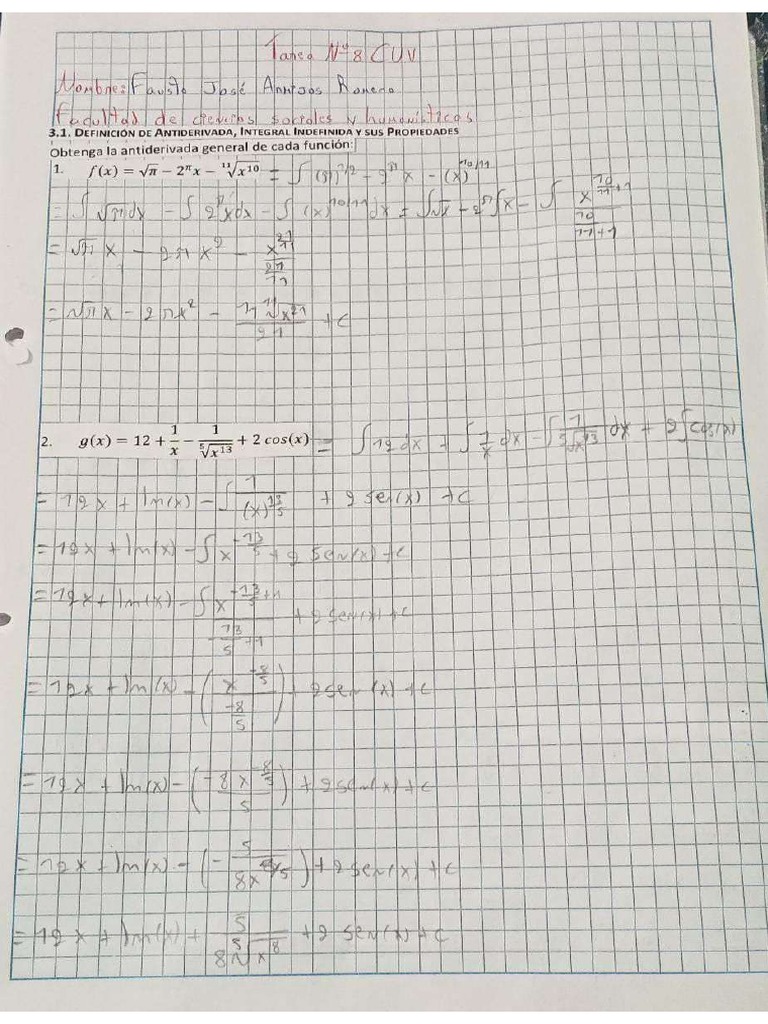 Tarea N° 8 CUV
Nombre: Fausto José Armijos Romero
Facultad de ciencias sociales y humanísticas
3.1. DEFINICIÓN DE ANTIDERIVADA, INTEGRAL INDEFINIDA Y SUS PROPIEDADES
Obtenga la antiderivada general de cada función:
1. f(x) = √π − 2^π x − ¹¹√(x^10) = ∫ (π)^1/2 − 2^π x − (x)^10/11
= ∫ √π dx − ∫ 2^π x dx − ∫ (x)^10/11 dx = ∫√π − 2^π ∫x − ∫ x^(10/11 + 1) / (10/11 + 1)
= √π x − 2π x² − x^(21/11) / (21/11)
= √π x − 2πx² − 11 ¹¹√(x^21) / 21 + C
2. g(x) = 12 + 1/x − 1/⁵√(x^13) + 2 cos(x) = ∫ 12 dx + ∫ 1/x dx − ∫ 1/⁵√(x^13) dx + 2 ∫ cos(x)
= 12x + ln(x) − ∫ 1/(x)^(13/5) + 2 sen(x) + C
= 12x + ln(x) − ∫ x^(−13/5) + 2 sen(x) + C
= 12x + ln(x) − ∫ x^(−13/5 + 1) / (−13/5 + 1) + 2 sen(x) + C
= 12x + ln(x) − (x^(−8/5) / (−8/5)) + 2 sen(x) + C
= 12x + ln(x) − (−8x^(−8/5) / 5) + 2 sen(x) + C
= 12x + ln(x) − (− 5 / 8x^(8/5)) + 2 sen(x) + C
= 12x + ln(x) + 5 / 8 ⁵√(x^8) + 2 sen(x) + C